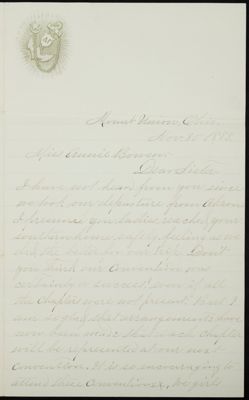 Mount Union, Ohio.
Nov 30 1883.
Miss Annie Bowson
Dear Sister
I have not hear from you since
we took our departure from Akron
I presume you Ladies reached your
southern home safely, feeling as we
did, the better for our trip. Don't
you think our Convention was
certainly a success? even if all
the Chapters were not present. but I
am so glad that arrangements have
now been made that each chapter
will be represented at our next
Convention. It is so encouraging to
attend these Conventions, we girls